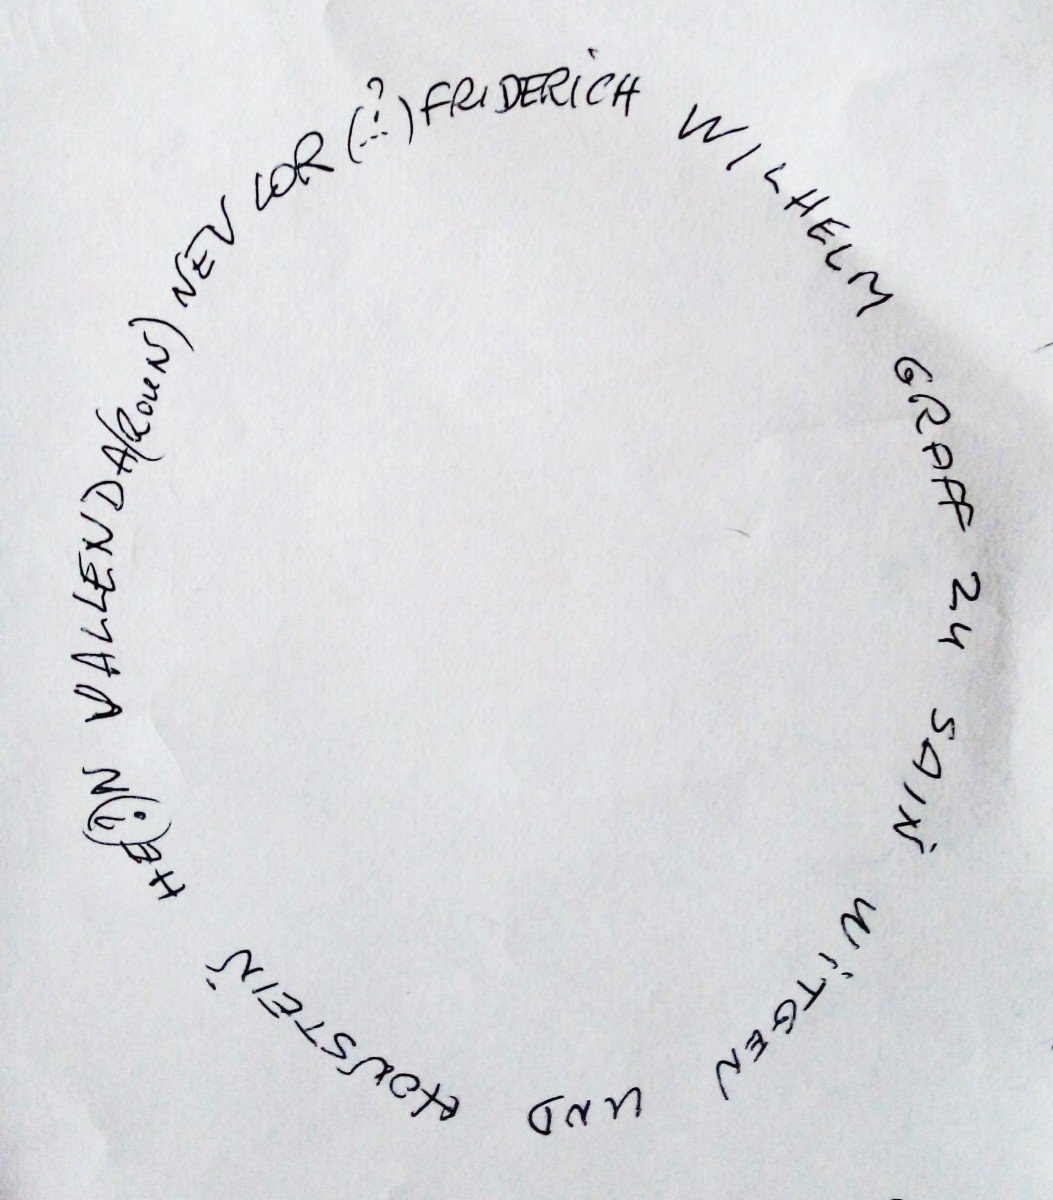 FRIDERICH WILHELM GRAFF 24 SAIN WITGEN UND HOWSTEIN HE(?)N VALLENDA(ROUN) NEV LOR (...?)